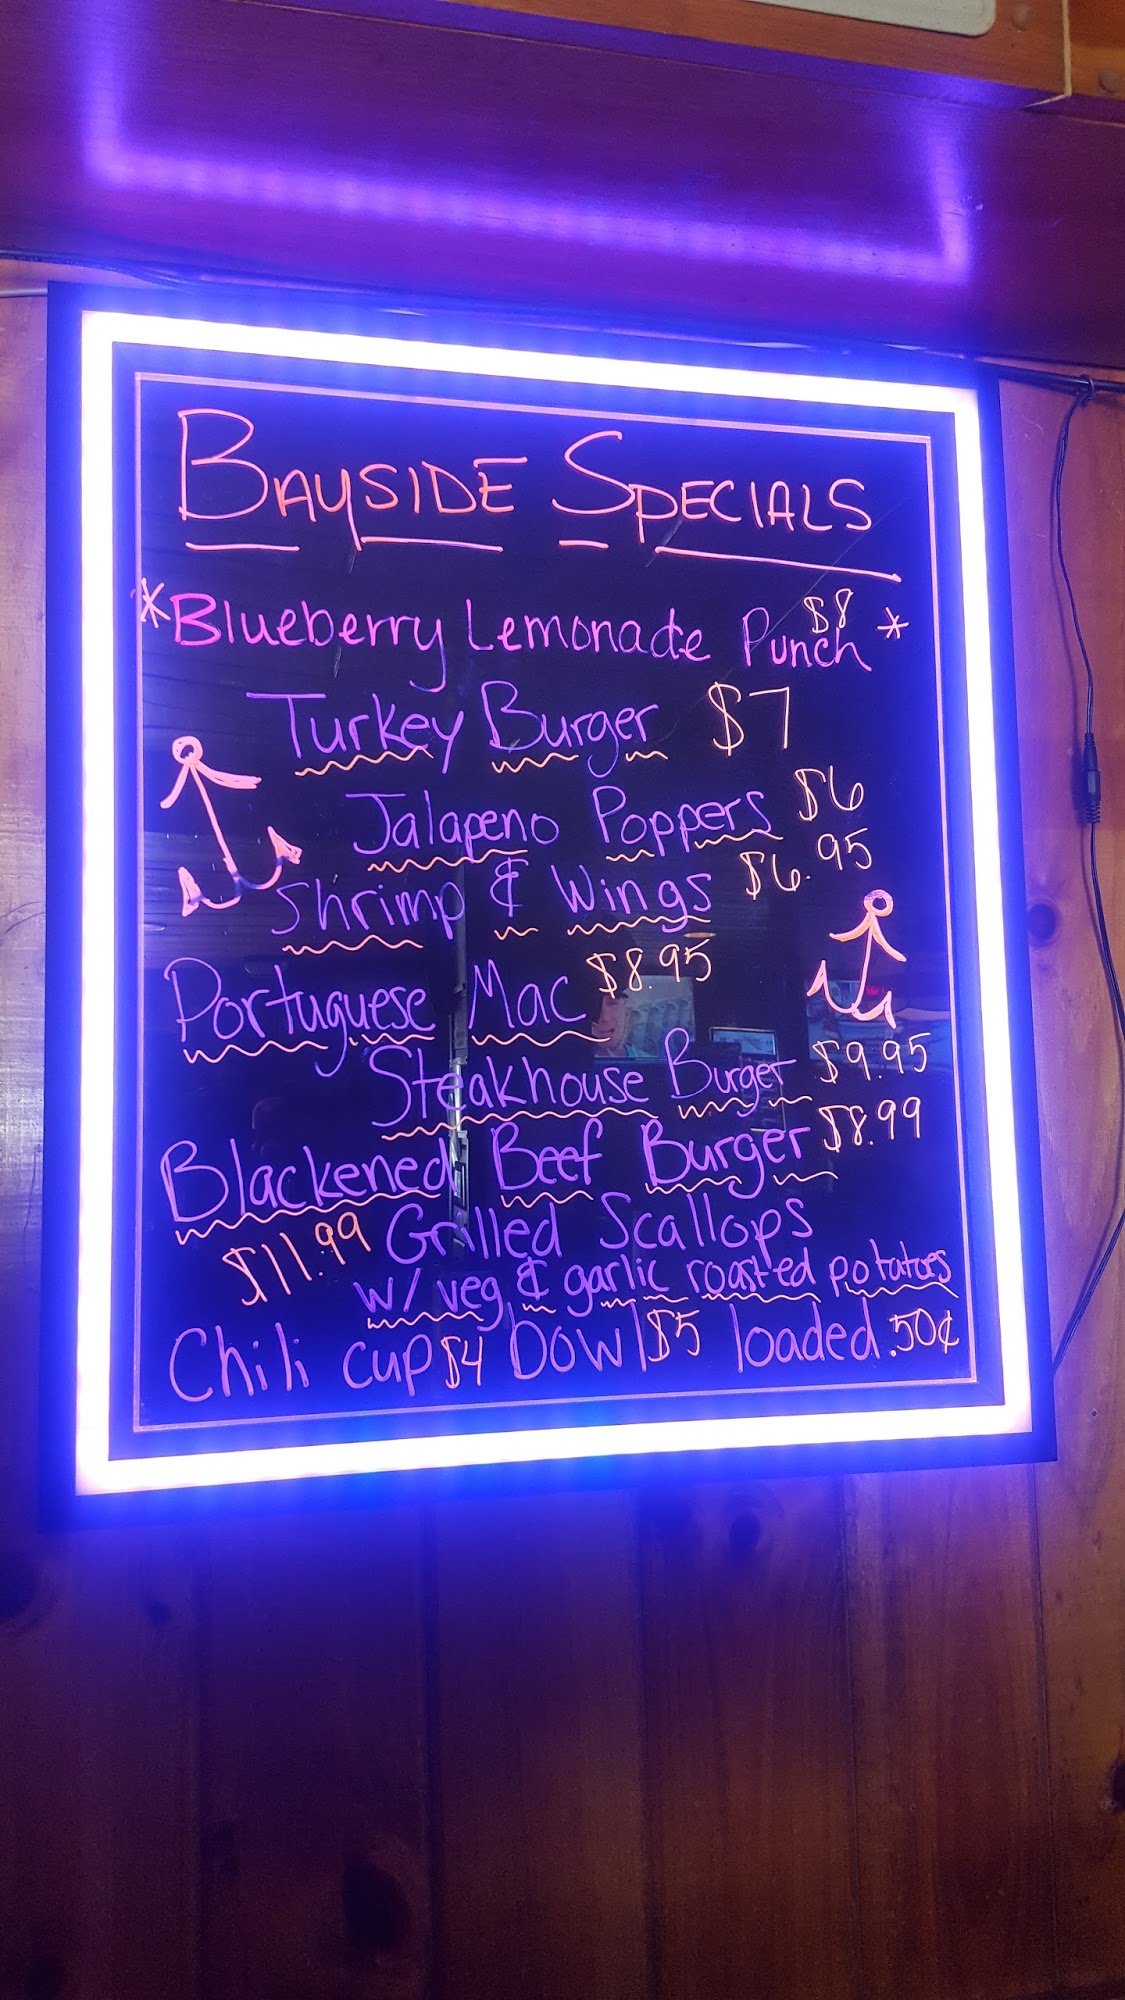 BAYSIDE SPECIALS
*Blueberry Lemonade Punch $8 *
Turkey Burger $7
Jalapeno Poppers $6
Shrimp & Wings $6.95
Portuguese Mac $8.95
Steakhouse Burger $9.95
Blackened Beef Burger $8.99
$11.99 Grilled Scallops
w/ veg & garlic roasted potatoes
Chili cup $4 Bowl $5 loaded .50¢